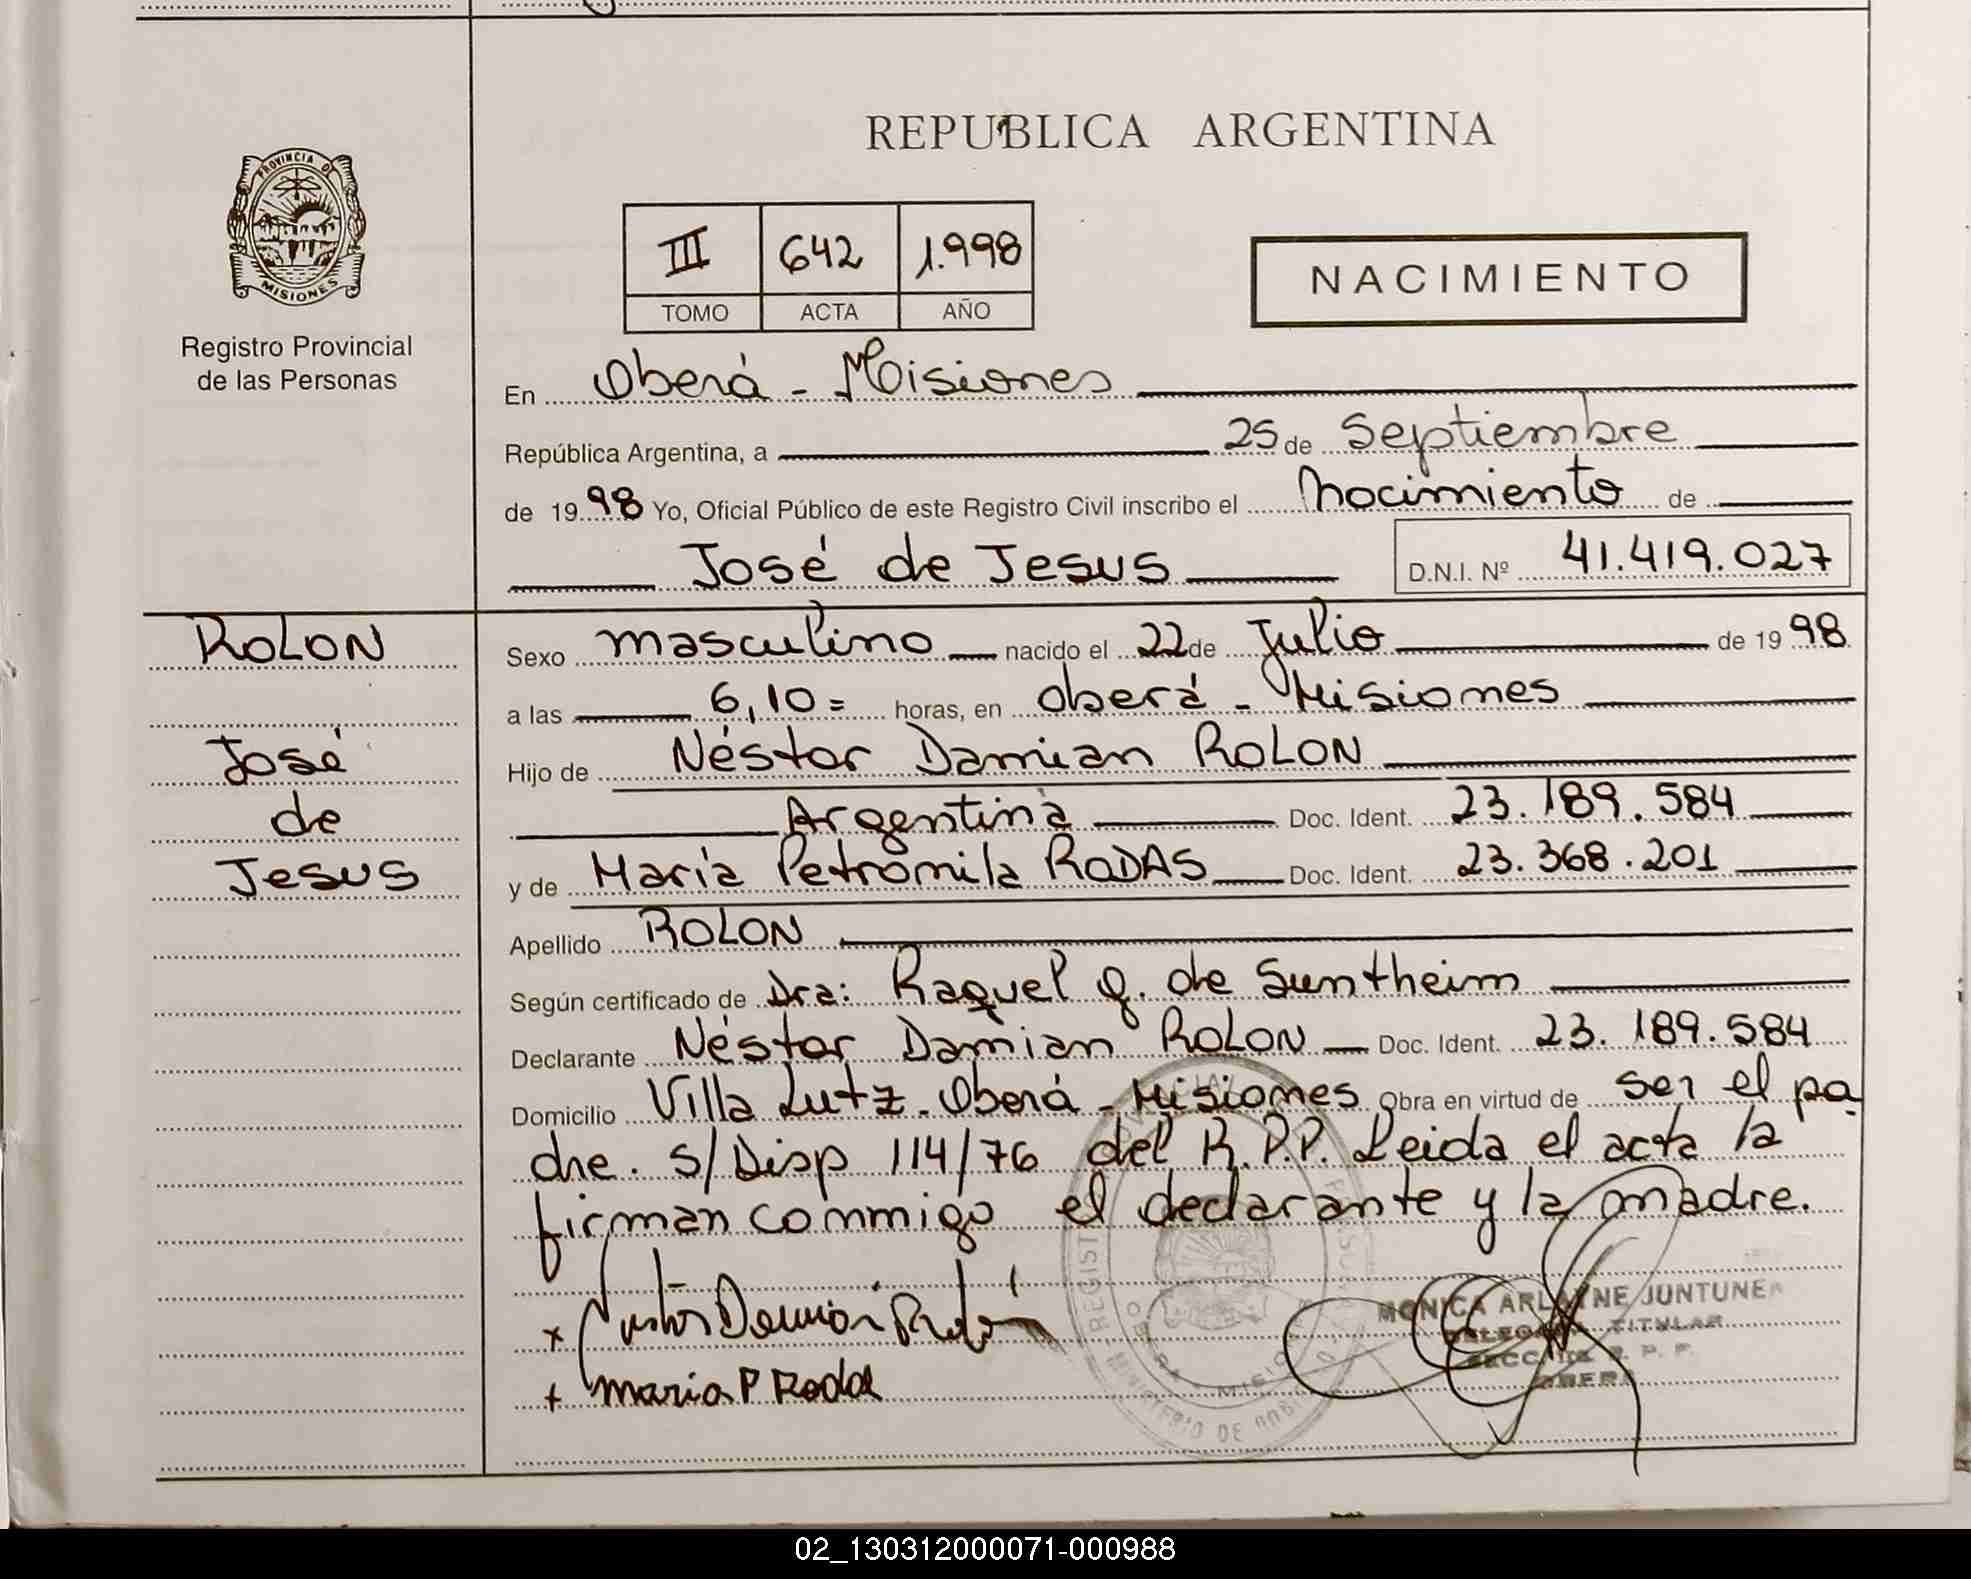 REPUBLICA ARGENTINA
PROVINCIA DE
MISIONES
Registro Provincial
de las Personas
III 642 1.998
TOMO ACTA AÑO
NACIMIENTO
En Oberá - Misiones
República Argentina, a 25 de Septiembre
de 1998 Yo, Oficial Público de este Registro Civil inscribo el Nacimiento de
José de Jesus D.N.I. Nº 41.419.027
ROLON
José
de
Jesus
Sexo masculino nacido el 22 de Julio de 1998
a las 6,10= horas, en Oberá - Misiones
Hijo de Néstor Damian ROLON
Argentina Doc. Ident. 23.189.584
y de María Petromila RODAS Doc. Ident. 23.368.201
Apellido ROLON
Según certificado de Dra: Raquel Q. de Suntheim
Declarante Néstor Damian ROLON Doc. Ident. 23.189.584
Domicilio Villa Lutz - Oberá - Misiones Obra en virtud de ser el pa
dre. s/Disp 114/76 del R.P.P. Leida el acta la
firman conmigo el declarante y la madre.
x Nestor Damian Rolón
+ Maria P Rodas
MONICA ARLAYNE JUNTUNEN
DELEGADA TITULAR
R. P. P.
OBERA
MINISTERIO DE GOBIERNO
02_130312000071-000988